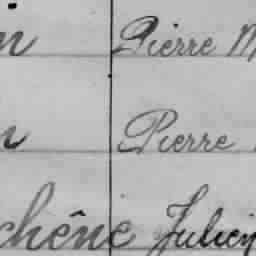 Pierre
Pierre
chêne Julien